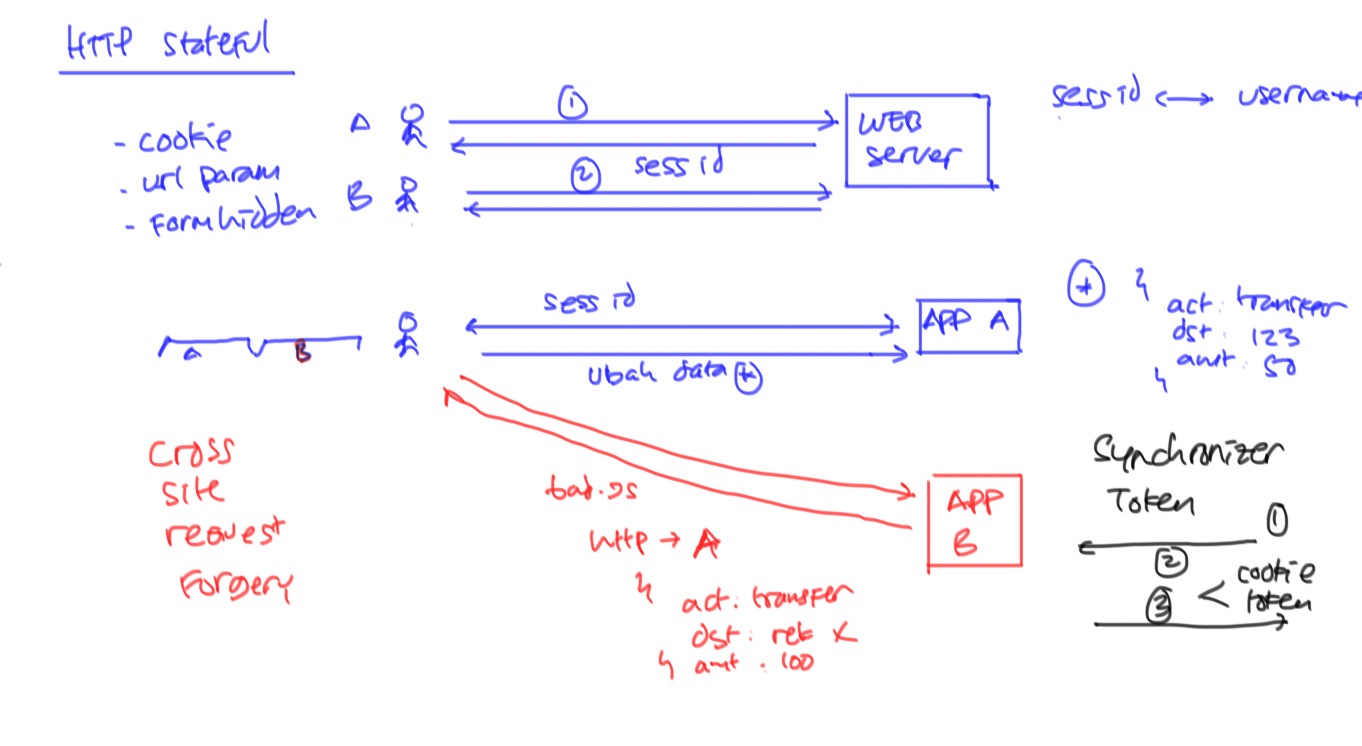 HTTP stateful
- cookie
- url param
- Form hidden
A
B
①
② sess id
WEB
server
sess id <-> username
A
B
sess id
Ubah data (*)
APP A
(*) {
act: transfer
dst: 123
amt: 50
}
Cross
Site
request
Forgery
bad.js
http → A
{
act: transfer
dst: rek X
} amt: 100
APP
B
Synchronizer
Token
①
②
③ < cookie
token